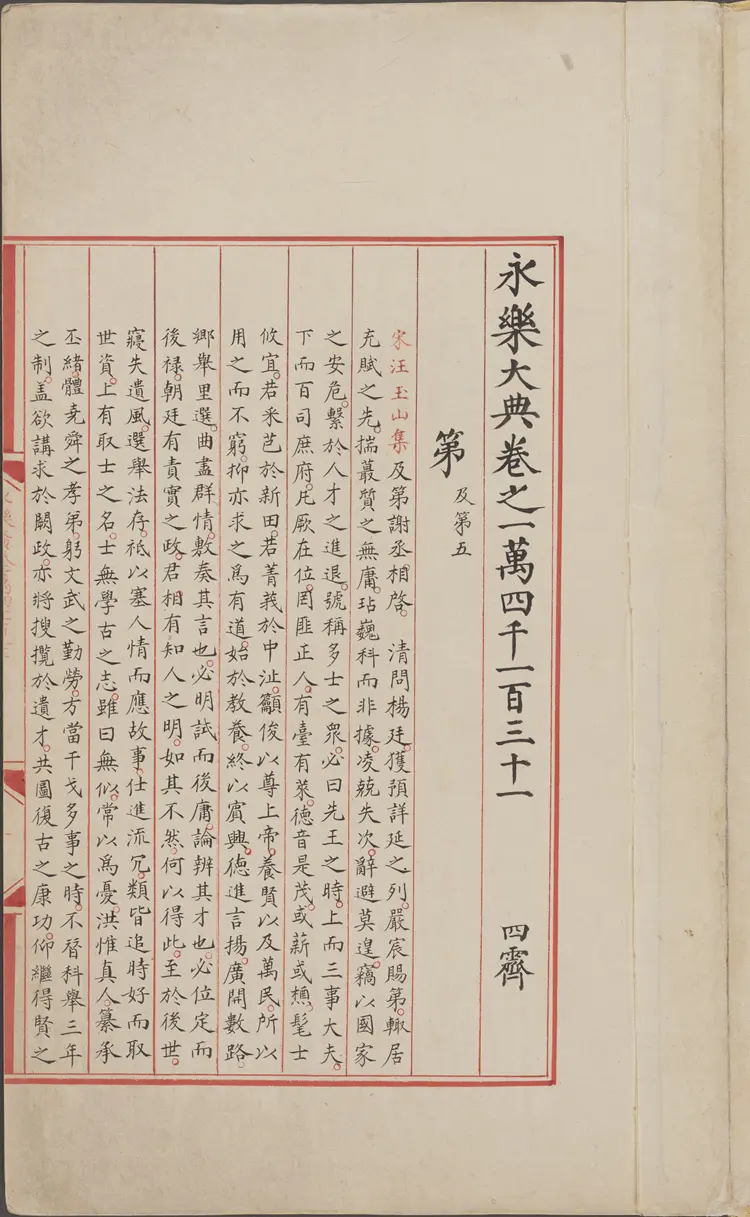 永樂大典卷之一萬四千一百三十一 四霽
第 及第五
宋汪玉山集及第謝丞相啓。 清問楊廷。獲預詳延之列。嚴宸賜第。輙居
充賦之先。揣蕞質之無庸。玷巍科而非據。凌兢失次。辭避莫遑。竊以國家
之安危。繫於人才之進退。號稱多士之衆。必曰先王之時。上而三事大夫。
下而百司庶府。凡厥在位。罔匪正人。有臺有萊。德音是茂。或薪或槱。髦士
攸宜。若采芑於新田。若菁莪於中沚。籲俊以尊上帝。養賢以及萬民。所以
用之而不窮。抑亦求之爲有道。始於教養。終以賓興。德進言揚。廣開數路。
鄉舉里選。曲盡群情。敷奏其言也。必明試而後庸。論辨其才也。必位定而
後禄。朝廷有責實之政。君相有知人之明。如其不然。何以得此。至於後世。
寢失遺風。選舉法存。祗以塞人情而應故事。仕進流冗。類皆追時好而取
世資。上有取士之名。士無學古之志。雖曰無似。常以爲憂。洪惟真人。纂承
丕緒。體堯舜之孝弟。躬文武之勤勞。方當干戈多事之時。不替科舉三年
之制。盖欲講求於闕政。亦將搜攬於遺才。共圖復古之康功。仰繼得賢之